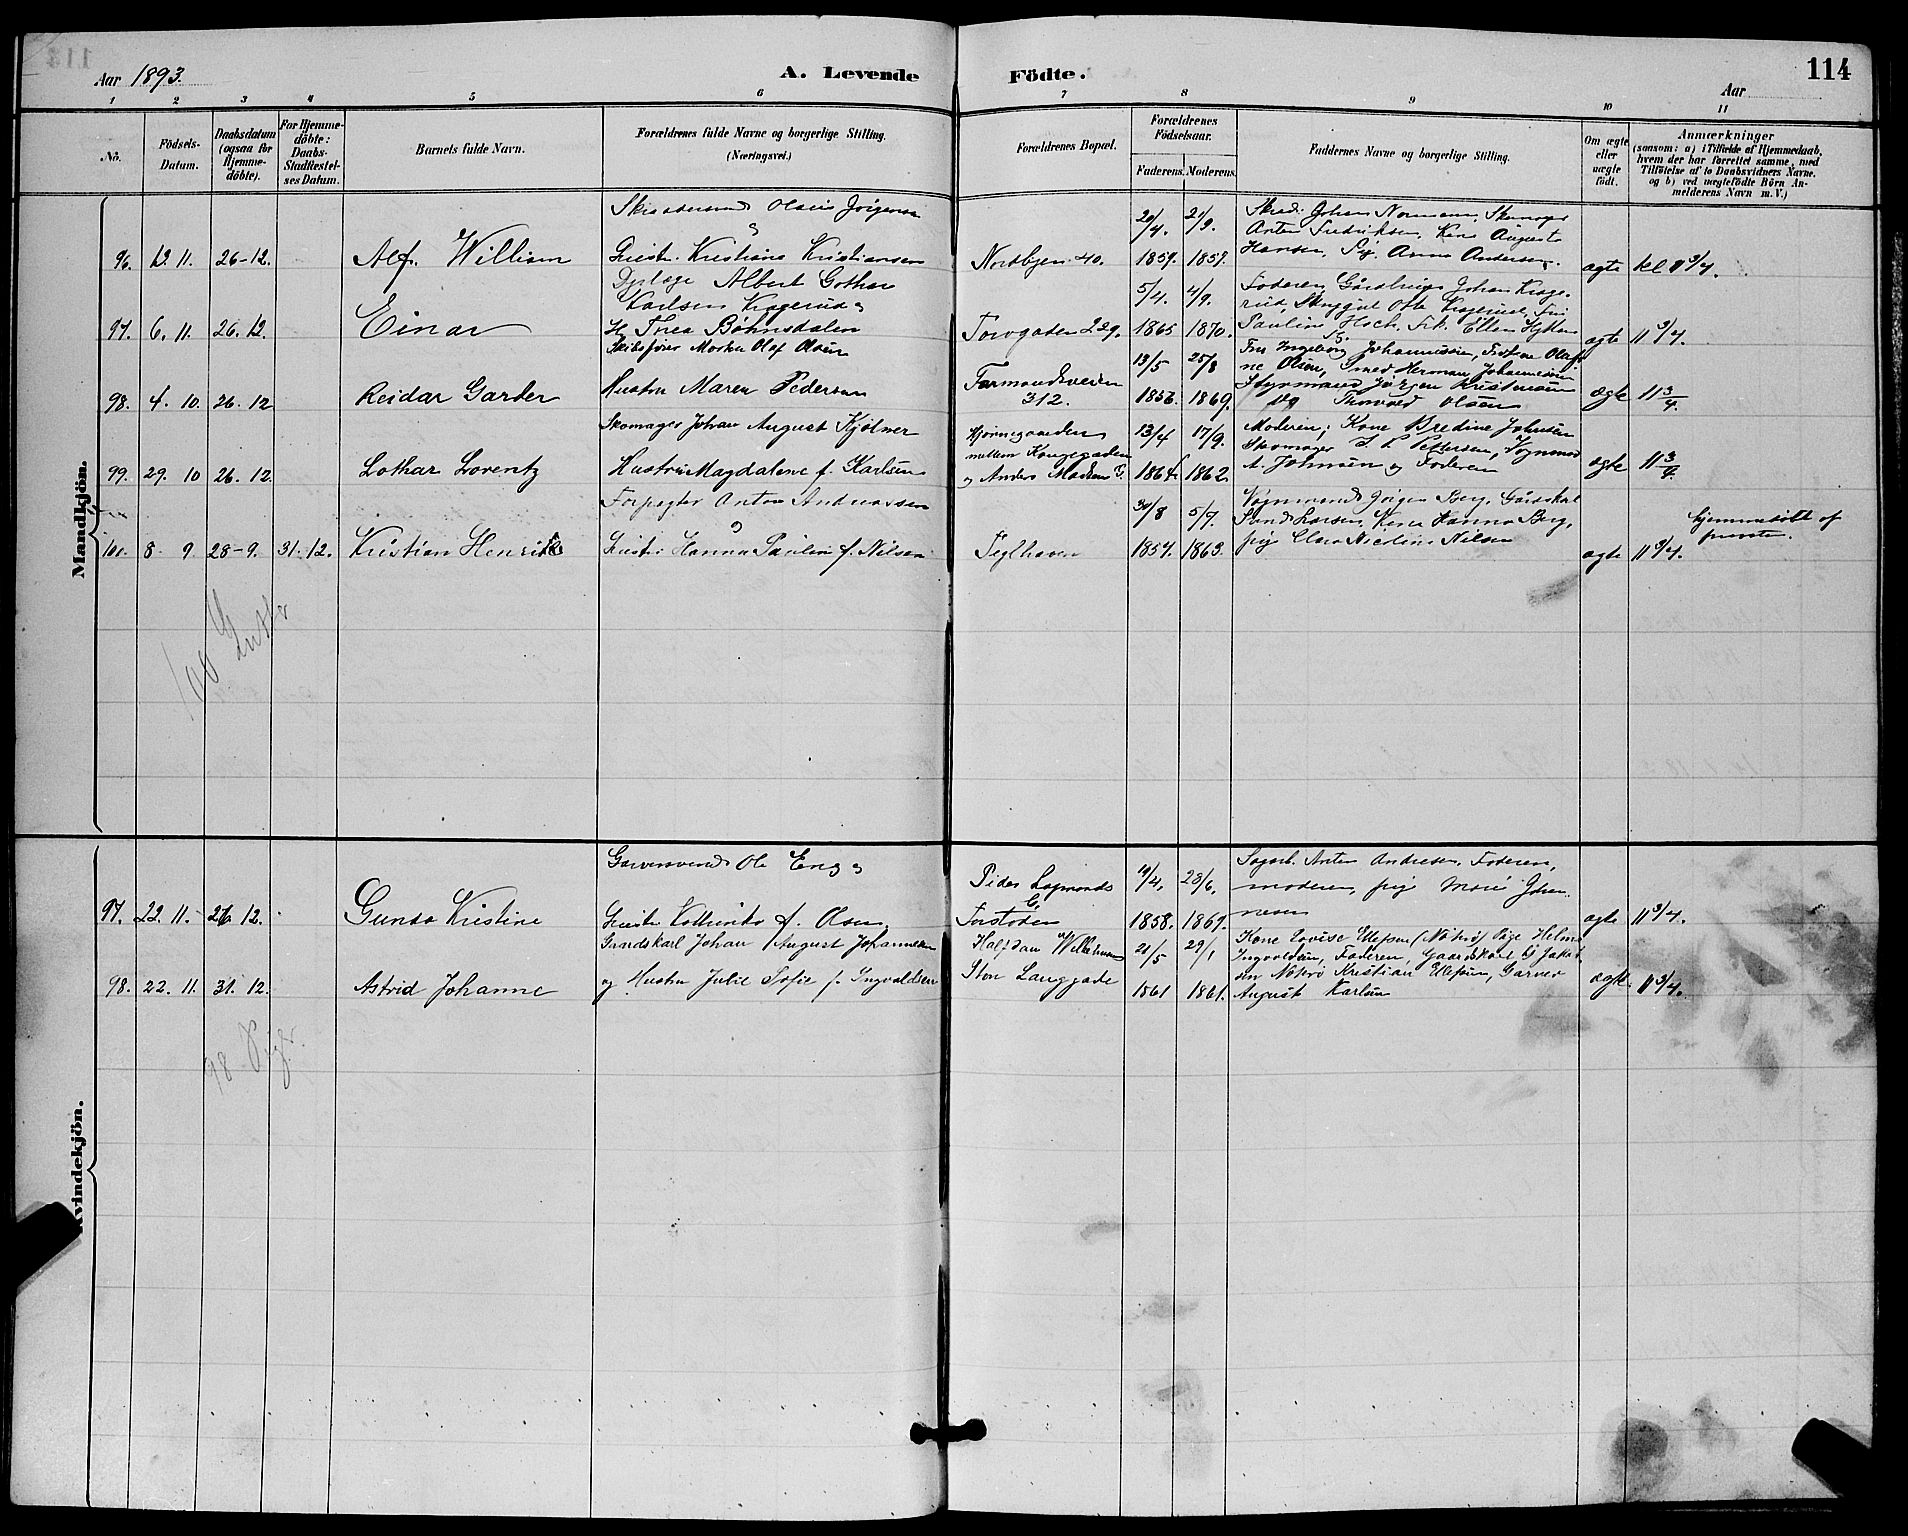 Aar 1893.
A. Levende Födte.
Aar
114
1 2 3 4 5 6 7 8 9 10 11
No.
Födsels-
Datum.
Daabsdatum
(ogsaa for
Hjemme-
döbte).
For Hjemme-
döbte:
Daabs-
Stadfæstel-
ses Datum.
Barnets fulde Navn.
Forældrenes fulde Navne og borgerlige Stilling.
(Næringsvei.)
Forældrenes Bopæl.
Forældrenes
Födselsaar.
Faderens. Moderens.
Faddernes Navne og borgerlige Stilling.
Om ægte
eller
uægte
födt.
Anmærkninger
(saasom: a) i Tilfælde af Hjemmedaab,
hvem der har forrettet samme, med
Tilföielse af to Daabsvidners Navne.
og b) ved uægtefödte Börn An-
melderens Navn m. V.)
Mandkjön.
96. 12. 11. 26-12. Alf. William
Jörgensen
Kristiane Kristiansen
Nordbyen 40.
20/4. 21/9.
1859. 1859.
Johan Normann, Skomager
Anton Fredriksen, Kone Auguste
Hansen, Pig. Anna Andersen.
ægte kl 11 3/4.
97. 6. 11. 26. 12. Einar
Albert Gothar
Karlsen Krogerud &
H. Thea Böhnsdalen
Torvgaden 229.
5/4. 4/9.
1865 1870.
Faderen, Gårdbruger Johan Kroge-
rud,
Pauline Hoch, Frk. Ellen
ægte 11 3/4.
98. 4. 10. 26. 12 Reidar Garder
Skibsförer Olaf Olsen
Hustru Maren Pedersen
Farmandsveien
312.
13/5 25/8
1856. 1869.
Fru Ingeborg Johannessen,
ne Olsen, Smed Herman Johannessen
Styrmand Jörgen Kristensen
og Thorvald Olsen
ægte 11 3/4
99. 29. 10 26. 12. Lothar Lorentz
Skomager Johan August Kjölner
Hustru Magdalene f. Karlsen
Hjörnegaarden
mellem Kongegaden
og Anders Madsens G.
13/4 17/9.
1864 1862.
Moderen; Kone Bredine Johnsen
Skomager Pettersen, Vognmand
A. Johnsen og Faderen
ægte 11 3/4.
100. 8. 9. 28-9. 31. 12. Kristian Henrik
Forpagter Anton Andreassen
&
Hustr. Hanna Paulin f. Nilsen.
Teglhaven
30/8 5/9.
1857. 1863.
Vognmand Jörgen Berg, Gårdskal
Larsen, Kone Hanna Berg,
pige Clara Nicoline Nilsen
ægte 11 3/4.
hjemmedöbt af
presten.
100 Gutter
Kvindekjön.
97. 22. 11. 26. 12. Gunda Kristine
Garversvend Ole Eng &
f. Olsen
Peder
G.
1858. 1867.
19/4. 28/6.
Anton Andresen, Faderen,
moderen, pig Marie Johan-
nesen
ægte 11 3/4.
98. 22. 11. 31. 12. Astrid Johanne
Gaardskarl Johan August Johannesen
og Hustru Julie Sofie f. Ingvaldsen
Halfdan Wilhelmsens
Store Langgade
21/5 29/1
1861 1861.
Kone Lovise Ellefsen (Nöterö) Pige Helma
Ingvoldsen, Faderen, Gaardskarl
sen Nöterö Kristian Ellefsen, Garver
August Karlsen
ægte. 11 3/4.
98 Piger.